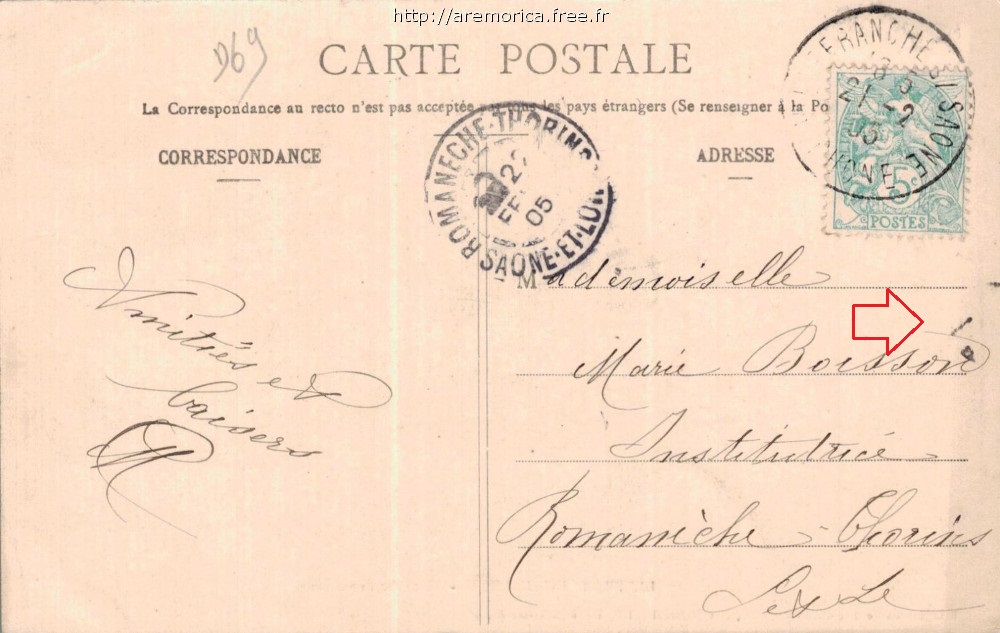 http://aremorica.free.fr
D69
CARTE POSTALE
La Correspondance au recto n'est pas acceptée par tous les pays étrangers (Se renseigner à la Po
CORRESPONDANCE
ADRESSE
FRANCHE S/SAONE
21 -2
05
RHONE
5
POSTES
ROMANECHE-THORINS
22
FEV
05
SAONE-ET-LOIRE
Mademoiselle
Marie Boisson
Institutrice
Romanèche-Thorins
S et Le
Amitiés et
baisers